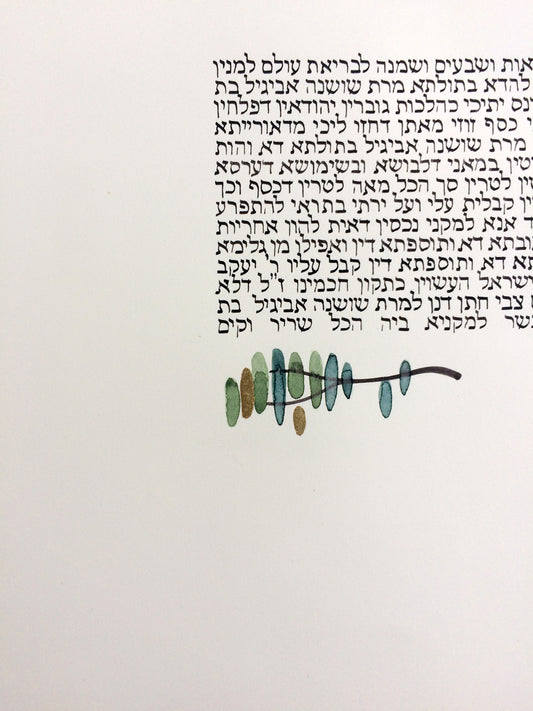 אות ושבעים ושמנה לבריאת עולם למנין
להדא בתולתא מרת שושנה אביגיל בת
יתיכי כהלכות גוברין יהודאין דפלחין
כסף זוזי מאתן דחזו ליכי מדאורייתא
מרת שושנה אביגיל בתולתא דא והות
במאני דלבושא ובשימושא דערסא
לטרין סך הכל מאה לטרין דכסף וכך
קבלית עלי ועל ירתי בתראי להתפרע
אנא למקני נכסין דאית להון אחריות
דא ותוספתא דין ואפילו מן גלימא
דא, ותוספתא דין קבל עליו ר' יעקב
ישראל העשוין כתקון חכמינו ז"ל דלא
צבי חתן דנן למרת שושנה אביגיל בת
למקניא ביה הכל שריר וקים